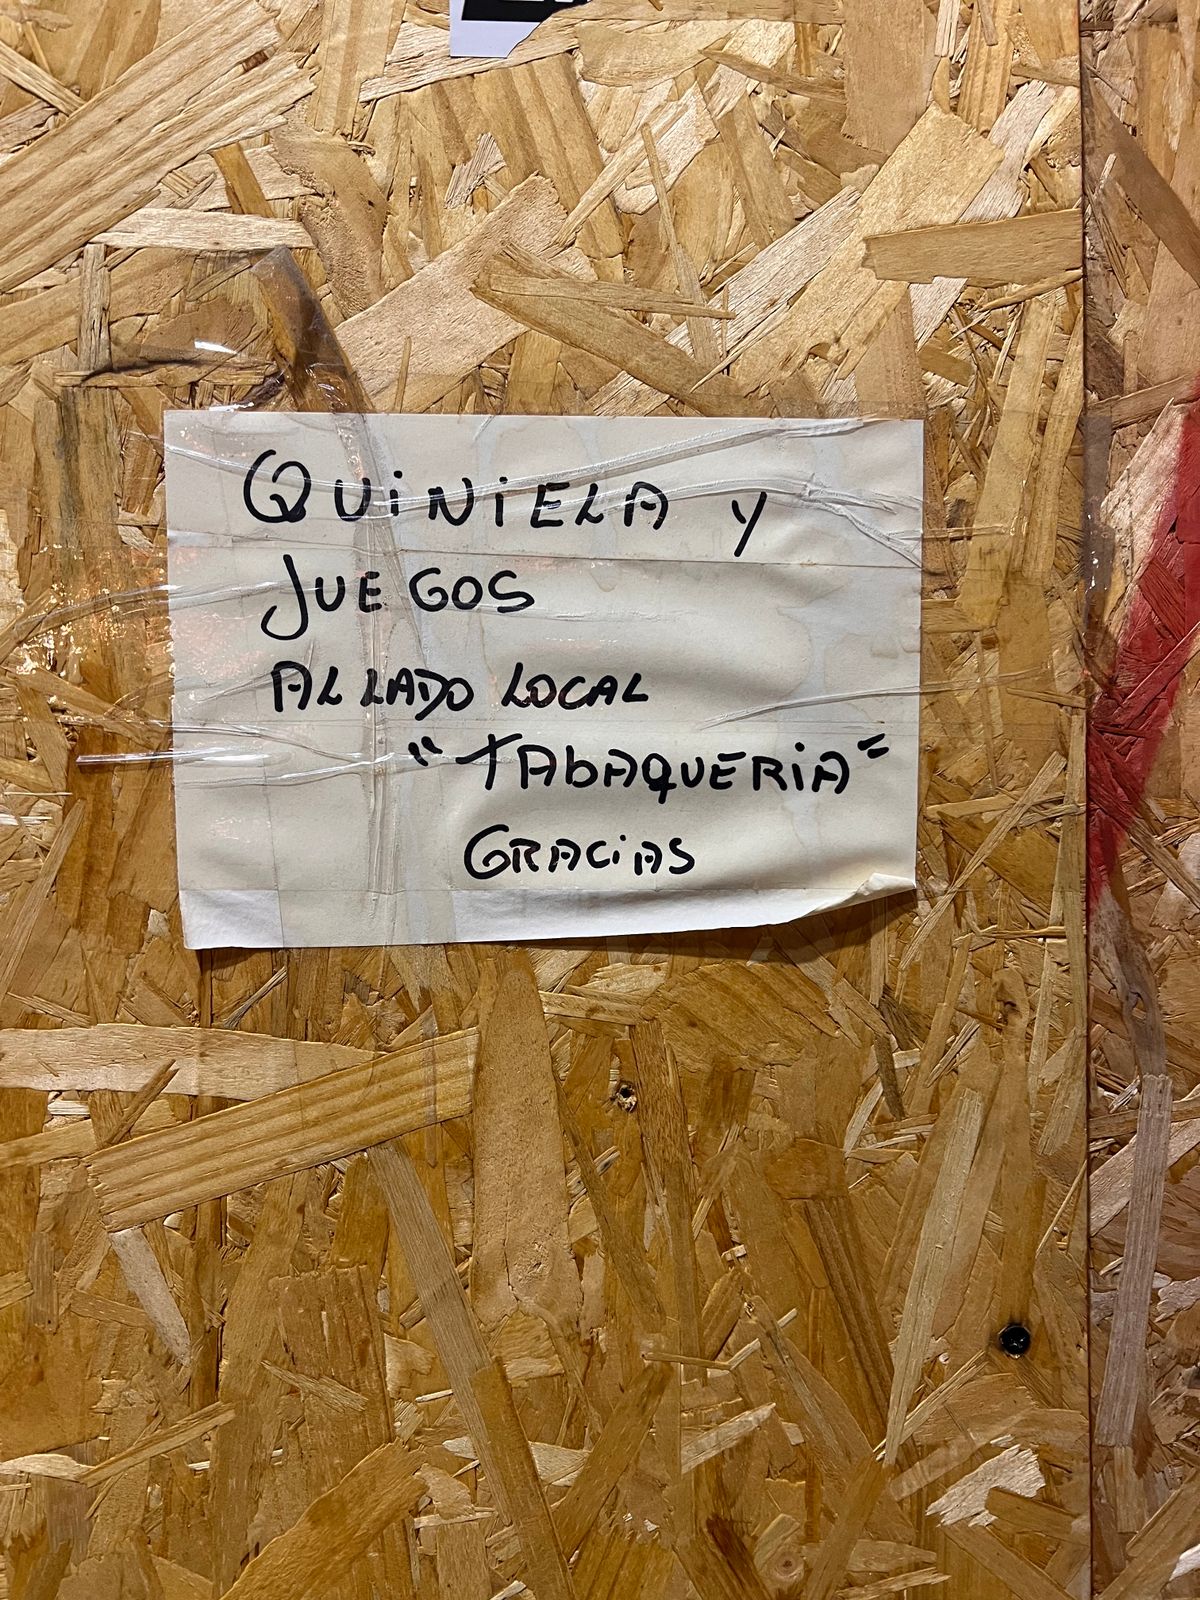 QUINIELA Y
JUEGOS
AL LADO LOCAL
"TABAQUERIA"
GRACIAS